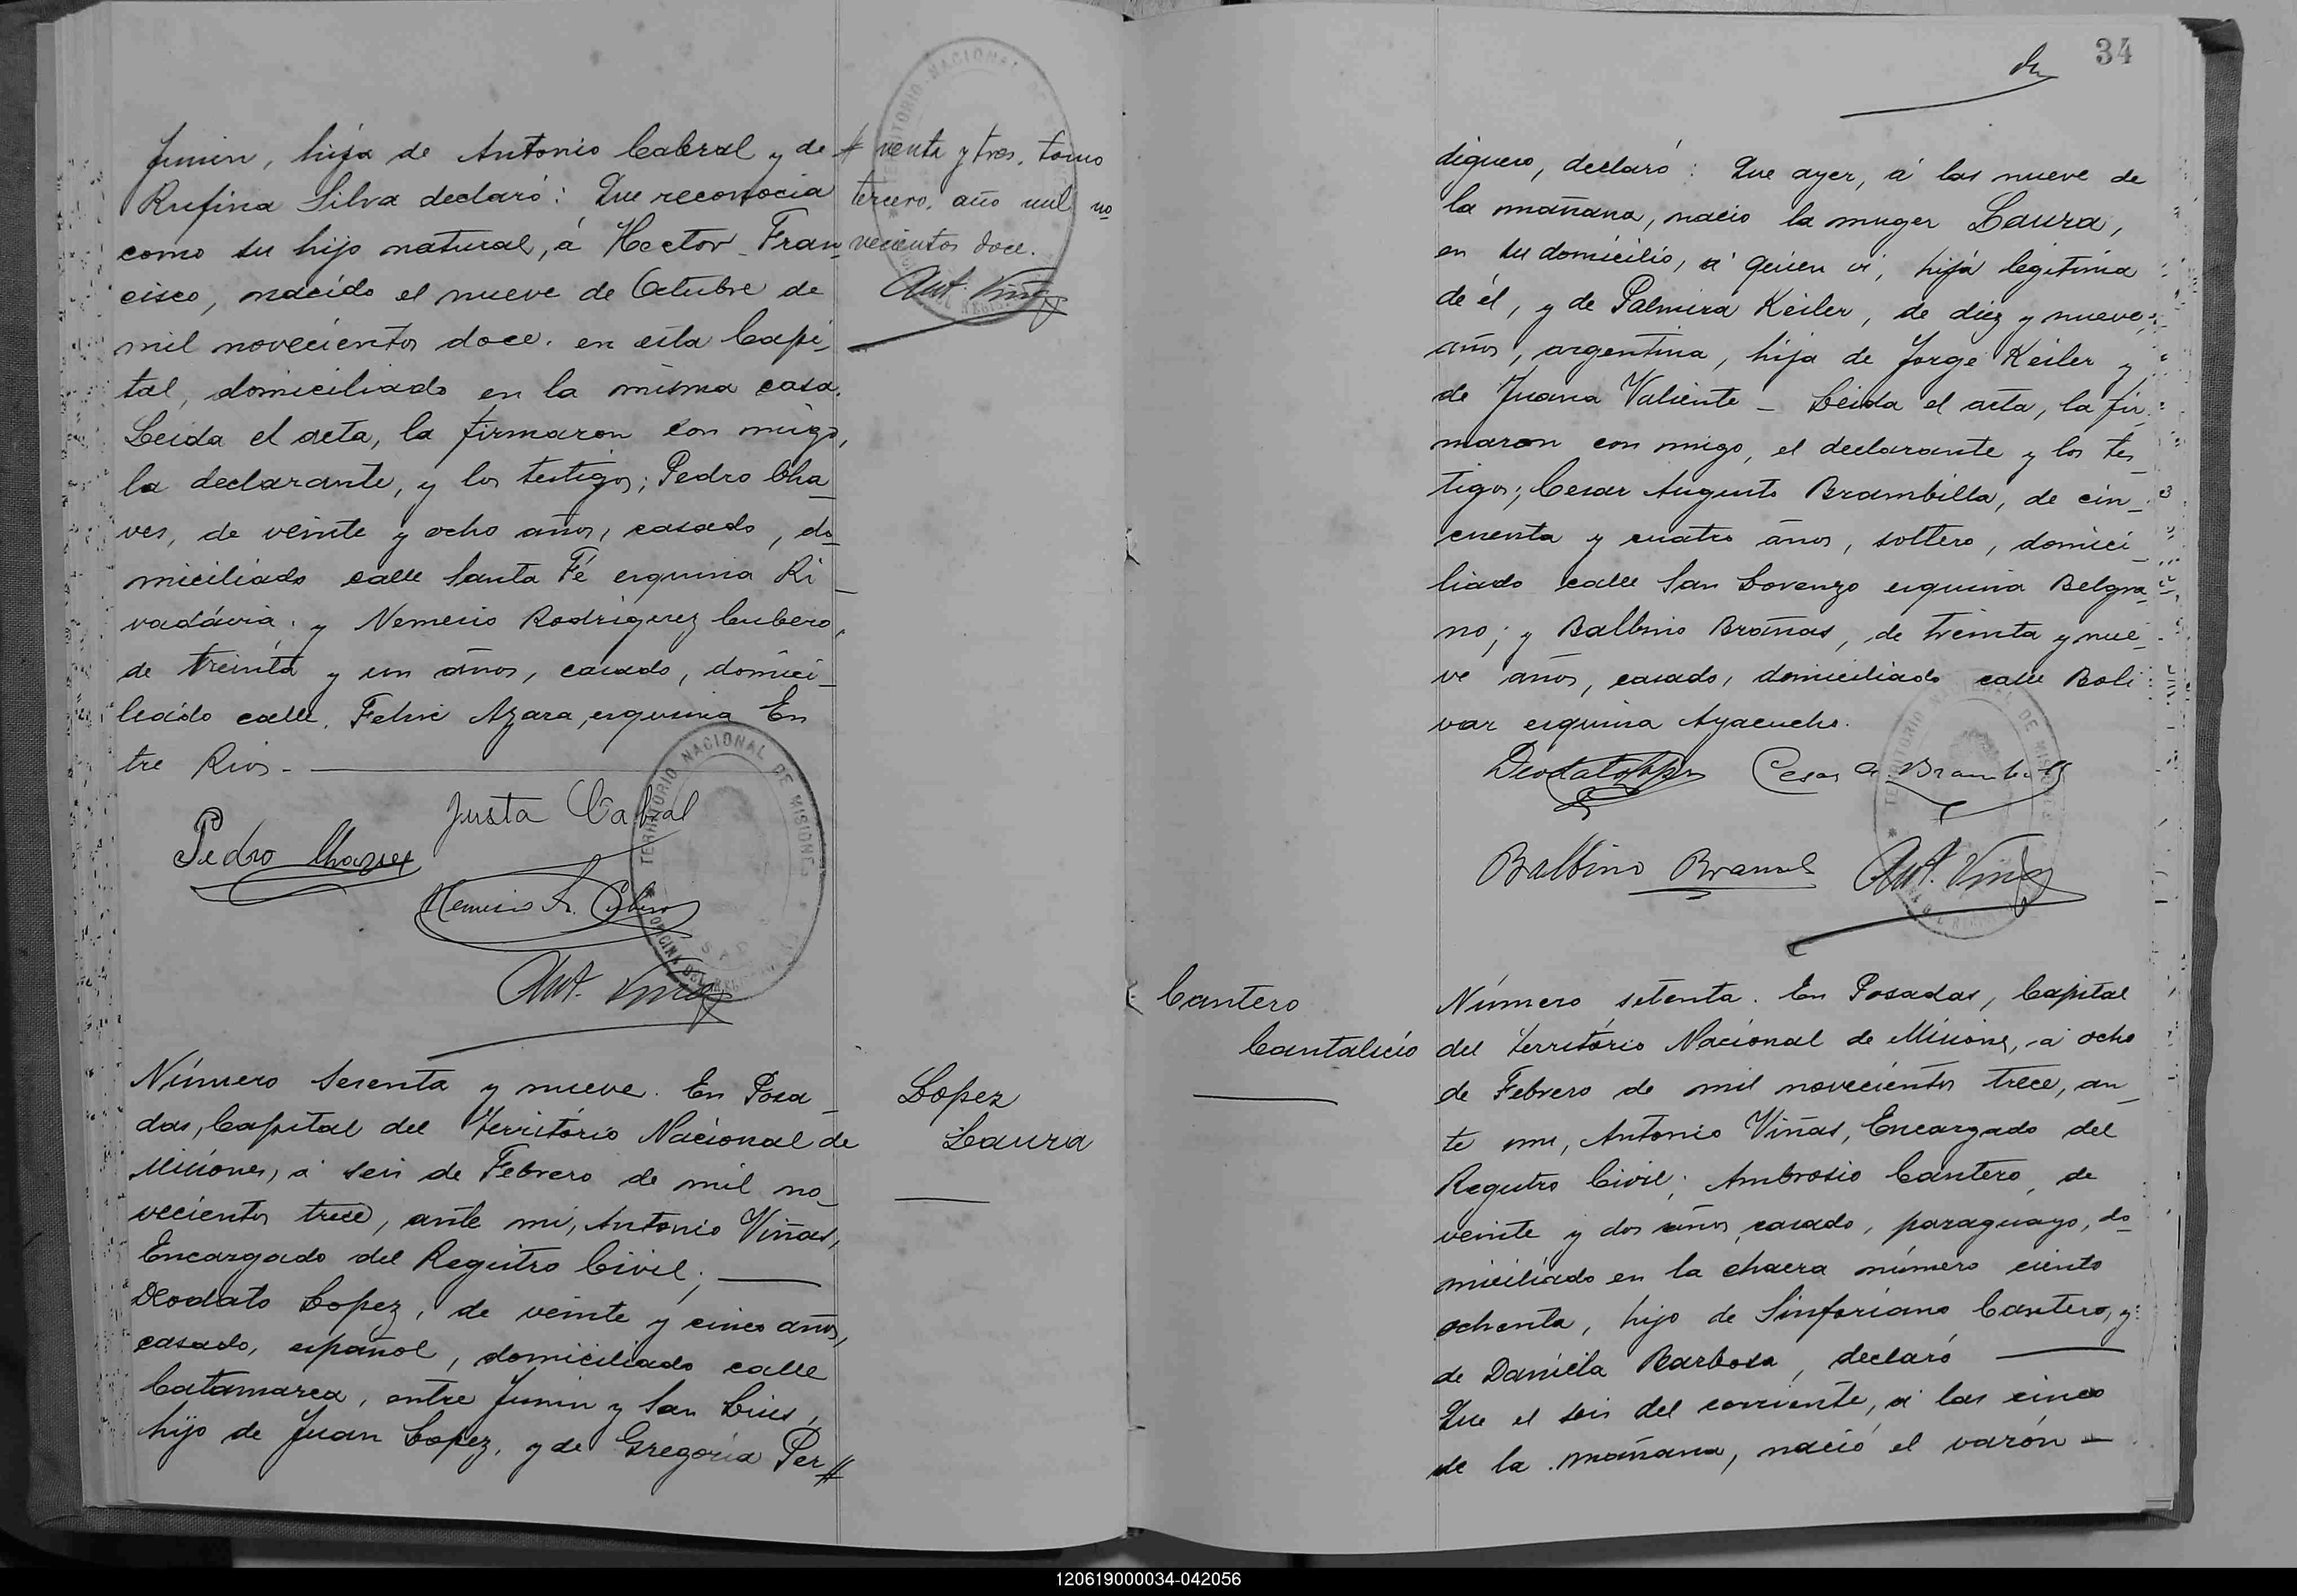 Junin, hija de Antonio Cabral y de #
Rufina Silva declaró: Que reconocia
como su hijo natural, á Hector Fran_
cisco, nacido el nueve de Octubre de
mil novecientos doce. en esta Capi_
tal, domiciliado en la misma casa.
Leida el acta, la firmaron con migo,
la declarante, y los testigos; Pedro Cha_
ves, de veinte y ocho años, casado, do_
miciliado calle Santa Fé esquina Ri_
vadávia; y Nemesio Rodriguez Cubero,
de treinta y un años, casado, domici_
liado calle Felix Azara, esquina En
tre Rios.
# venta y tres, tomo
tercero, año mil no
vecientos doce.
Ant. Viñas
Justa Cabral
Pedro Chavez
Nemesio R. Cubero
Ant. Viñas
TERRITORIO NACIONAL DE MISIONES
Número Sesenta y nueve. En Posa_
das, Capital del Território Nacional de
Misiones, á seis de Febrero de mil no_
vecientos trece, ante mi, Antonio Viñas,
Encargado del Registro Civil;
Deodato Lopez, de veinte y cinco años,
casado, español, domiciliado calle
Catamarca, entre Junin y San Luis,
hijo de Juan Lopez, y de Gregoria Per #
Lopez
Laura
34
diguero, declaró: Que ayer, á las nueve de
la mañana, nacio la muger Laura,
en su domicilio, á quien vi, hija legitima
de él, y de Palmira Keiler, de diez y nueve
años, argentina, hija de Jorge Keiler y
de Juana Valiente _ Leida el acta, la fir_
maron con migo, el declarante y los tes_
tigos; Cesar Augusto Brambilla, de cin_
cuenta y cuatro años, soltero, domici_
liado calle San Lorenzo esquina Belgra_
no; y Balbino Brañas, de treinta y nue_
ve años, casado, domiciliado calle Boli
var esquina Ayacucho.
Deodato Lopez Cesar A. Brambilla
Balbino Brañas Ant. Viñas
Cantero
Cantalicio
Número setenta. En Posadas, Capital
del Território Nacional de Misiones, á ocho
de Febrero de mil novecientos trece, an_
te mi, Antonio Viñas, Encargado del
Registro Civil; Ambrosio Cantero, de
veinte y dos años, casado, paraguayo, do_
miciliado en la chacra número ciento
ochenta, hijo de Sinforiano Cantero, y
de Daniela Barbosa, declaró
Que el seis del corriente, á las cinco
de la mañana, nació el varón _
120619000034-042056